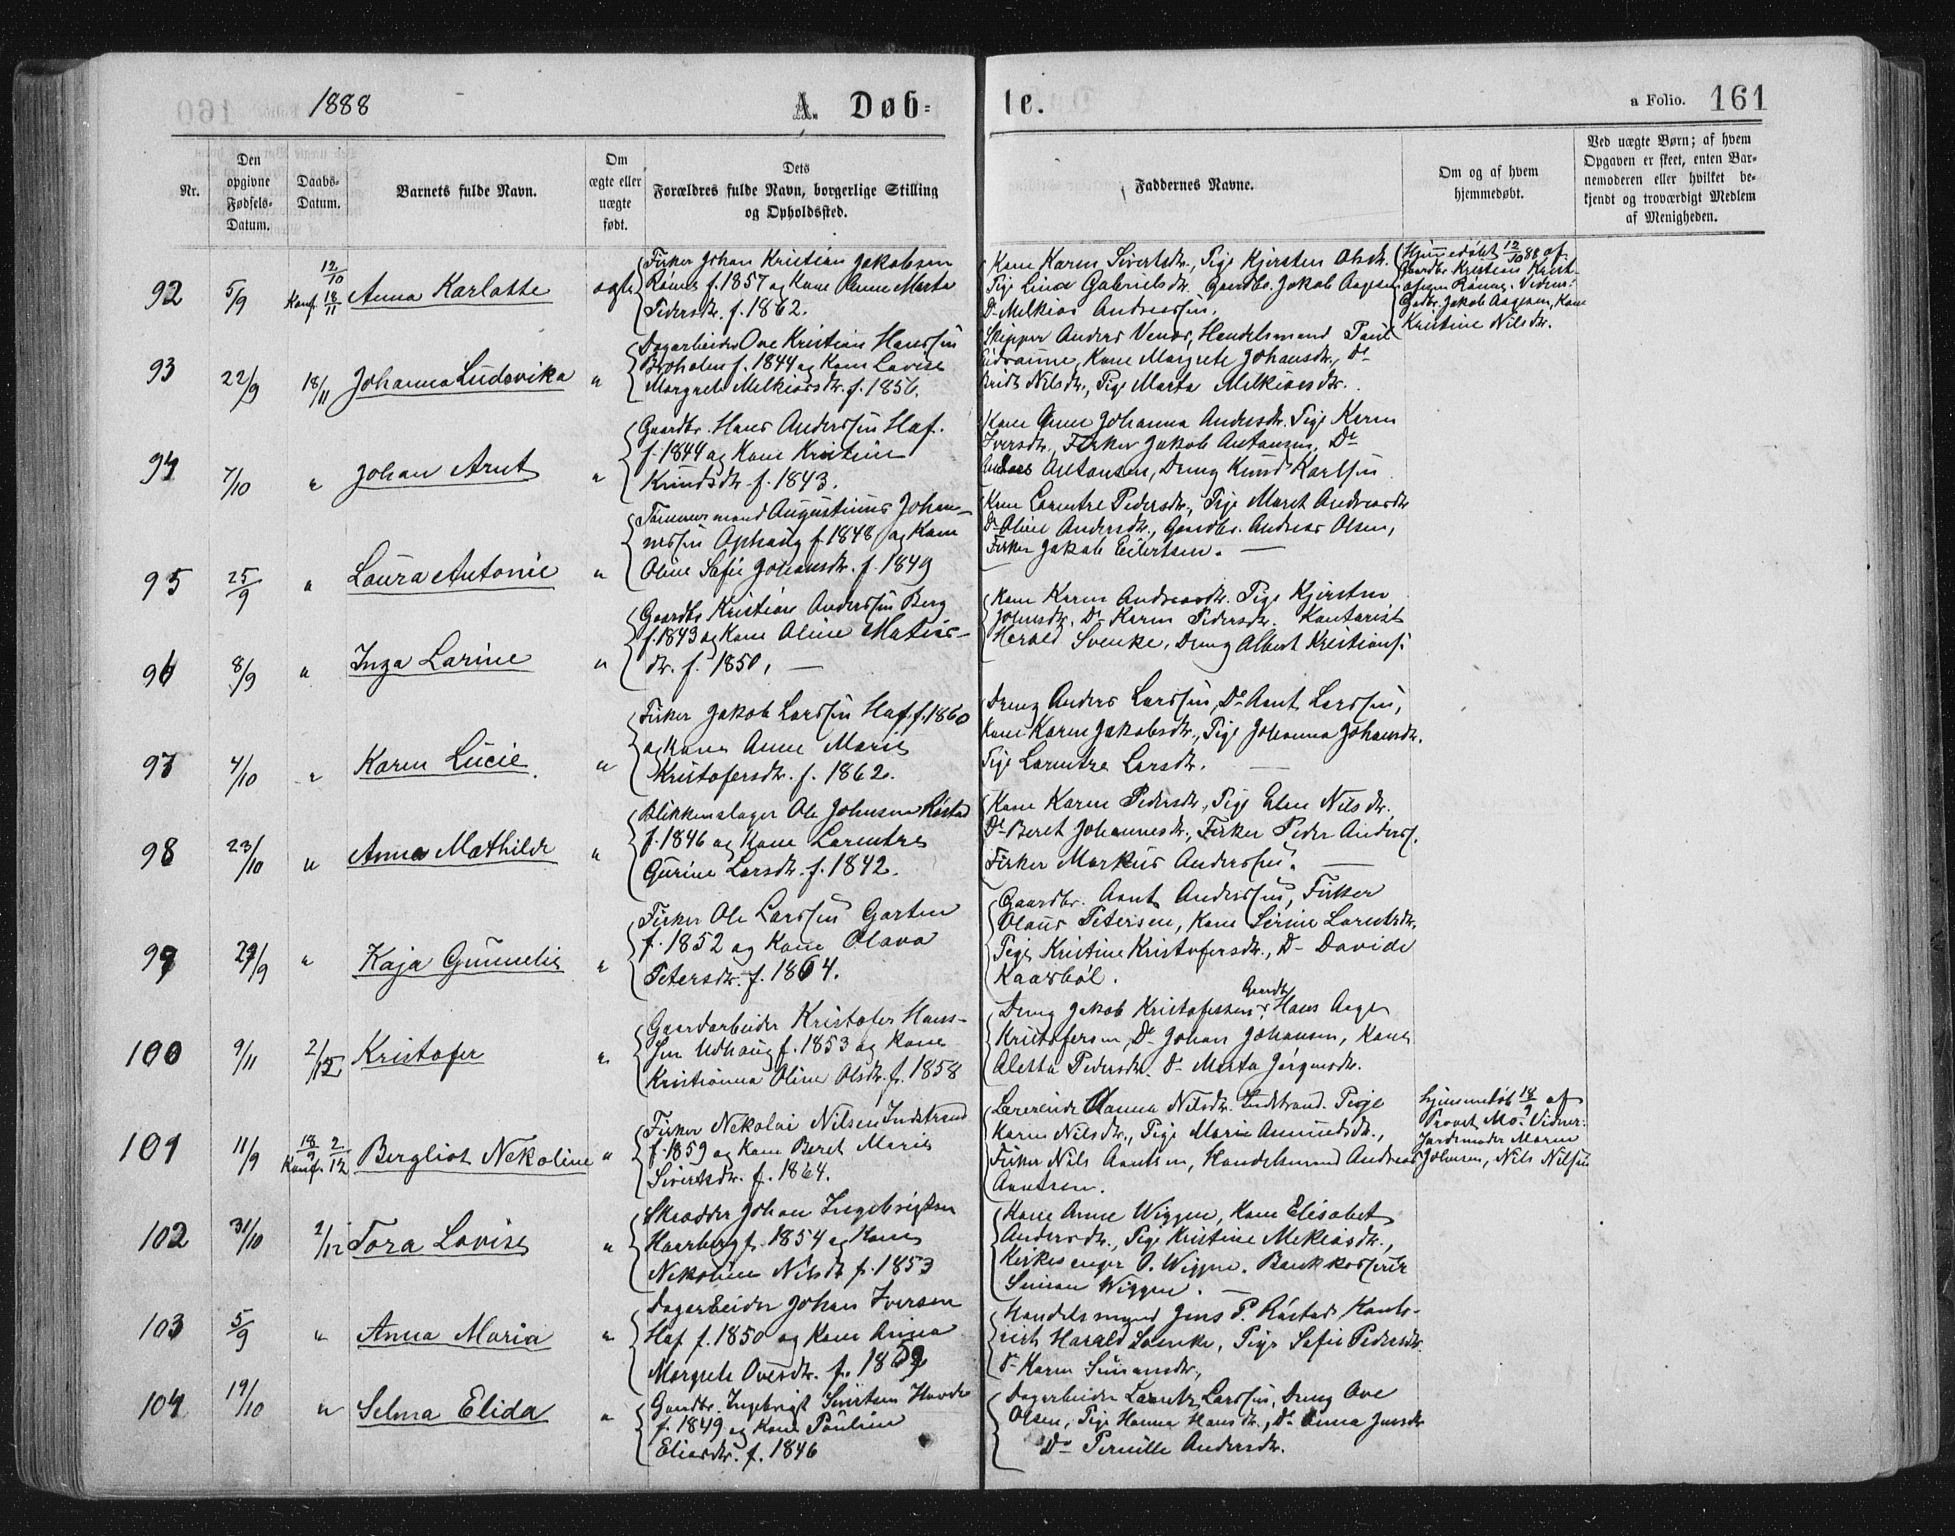 1888
A. Døb-
te.
a Folio. 161
Nr.
Den opgivne Fødsels-Datum.
Daabs-Datum.
Barnets fulde Navn.
Om ægte eller uægte født.
Dets Forældres fulde Navn, borgerlige Stilling og Opholdssted.
Faddernes Navne.
Om og af hvem hjemmedøbt.
Ved uægte Børn; af hvem Opgaven er skeet, enten Barnemoderen eller hvilket bekjendt og troværdigt Medlem af Menigheden.
92 5/9 12/10 Konf. 18/11 Anna Karlotte ægte
Fisker Johan Kristian Jakobsen
f. 1857 og Kone Anne Marta
Pedersdr. f. 1862.
Kone Karen Sivertsdr., Pige Kjersten Olsdr.
Pige Lina Gabrielsdr. Gaardbr. Jakob Aagesen
Dr Melkior Andreassen.
Hjemmedøbt 12/10 88 af
Gaardbr. Kristian Krist-
Vidner:
Gdbr. Jakob Aagesen, Kone
Kristine Nilsdr.
93 22/9 18/11 Johanna Ludovika "
Dagarbeider Ove Kristian Hanssen
f. 1844 og Kone Lovise
Margrete Melkiorsdr. f. 1856.
Skipper Anders Venæs, Handelsmand Paul
Kone Margrete Johansdr., De
Nilsdr., Pige Marta Melkiorsdr.
94 7/10 " Johan Arnt "
Gaardbr. Hans Anderssen Haf.
f. 1844 og Kone Kristine
Knudsdr. f. 1843.
Kone Anne Johanna Andersdr. Pige Karen
Iversdr., Fisker Jakob Antonsen, De
Anders Antonsen, Dreng Knud Karlsen
95 25/9 " Laura Antonie "
Tømmermand Augustinus Johan-
nessen Ophaug f. 1848 og Kone
Oline Sofie Johansdr. f. 1849
Kone Lorentze Pedersdr., Pige Maret Andreasdr
De Oline Andersdr., Gaardbr. Andreas Olsen,
Fisker Jakob Eilertsen. —
96 8/9 " Inga Larine "
Gaardbr. Kristian Anderssen Berg
f. 1843 og Kone Oline Matias-
dr. f. 1850. —
Kone Karen Andreasdr. Pige Kjersten
Johnsdr. De Karen Pedersdr. Kontorist
Herald Svenke, Dreng Albert Kristians.
97 4/10 " Karen Lucie. "
Fisker Jakob Larssen Haf f. 1860
og Kone Anne Marie
Kristofersdr. f. 1862.
Dreng Anders Larssen, De Arnt Larssen,
Kone Karen Jakobsdr., Pige Johanna Johansdr.
Pige Lorentze Larsdr. —
98 23/10 " Anna Mathilde "
Blikkenslager Ole Johnsen Røstad
f. 1846 og Kone Lorentze
Gurine Larsdr. f. 1842.
Kone Karen Pedersdr., Pige Elen Nilsdr.
De Beret Johannesdr., Fisker Peder Anders.
Fisker Markus Anderssen. —
99 29/9 " Kaja Gunnelie "
Fisker Ole Larssen Garten
f. 1852 og Kone Olava
Petersdr. f. 1864.
Gaardbr. Arnt Anderssen, Fisker
Olaus Petersen, Kone Serine Larentsdr.
Pige Kristine Kristofersdr., De Davida
Kaarbøl.
100 9/11 2/12 Kristofer "
Gaardarbeider Kristofer Hans-
sen Udhaug f. 1853 og Kone
Kristianna Oline Olsdr. f. 1858
Dreng Jakob Kristofersen, Gaardbr. Hans Aage
Kristofersen, De Johan Johansen, Kone
Aletta Pedersdr. De Marta Jørgensdr.
101 11/9 18/9 Konf. 2/12 Bergliot Nekoline "
Fisker Nekolai Nilsen Indstrand
f. 1859 og Kone Beret Marie
Sivertsdr. f. 1864.
Lærerinde Hanna Nilsdr. Indstrand. Pige
Karen Nilsdr., Pige Marie Asmundsdr.,
Fisker Nils Arntsen, Handelsmand Andreas
Arntsen.
hjemmedøbt 18/9 af
Provst Mo. Vidner:
Jordemoder Maren
Johnsen, Nils Nilsen
102 31/10 2/12 Tora Lovise "
Skrædder Johan Ingebrigtsen
Haarberg f. 1854 og Kone
Nekoline Nilsdr f. 1853
Kone Anne Wiggen, Kone Elisabet
Andersdr., Pige Kristine Mekiasdr.,
Kirkesanger O. Wiggen. Bankkasserer
Simon Wiggen. —
103 5/9 " Anna Maria "
Dagarbeider Johan Iversen
Haf f. 1850 og Kone Anna
Margrete Ovesdr. f. 1859
Handelsmand Jens P. Røstad, Konto-
rist Harald Svenke, Pige Sofie Pedersdr.
De Karen Simonsdr.,
104 19/10 " Selma Elida "
Gaardbr. Ingebrigt Sivertsen Hovde
f. 1849 og Kone Pauline
Eliasdr. f. 1846
Dagarbeider Lorents Larssen, Dreng Ove
Olsen, Pige Hanna Hansdr., De Anna Jensdr
De Pernille Andersdr.